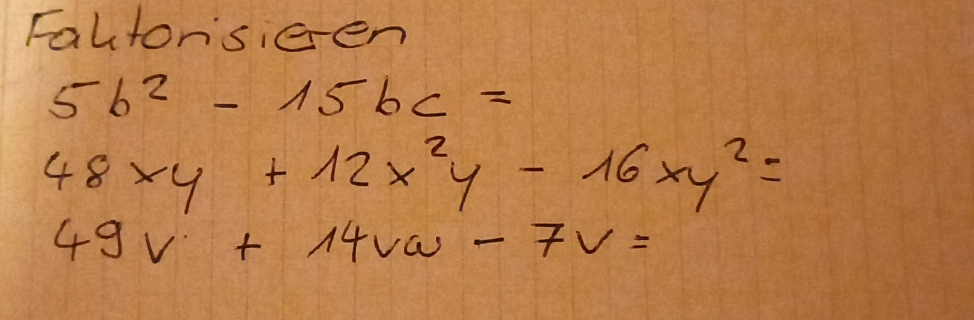 Faktorisieren
5b² - 15bc =
48xy + 12x²y - 16xy² =
49v + 14vw - 7v =